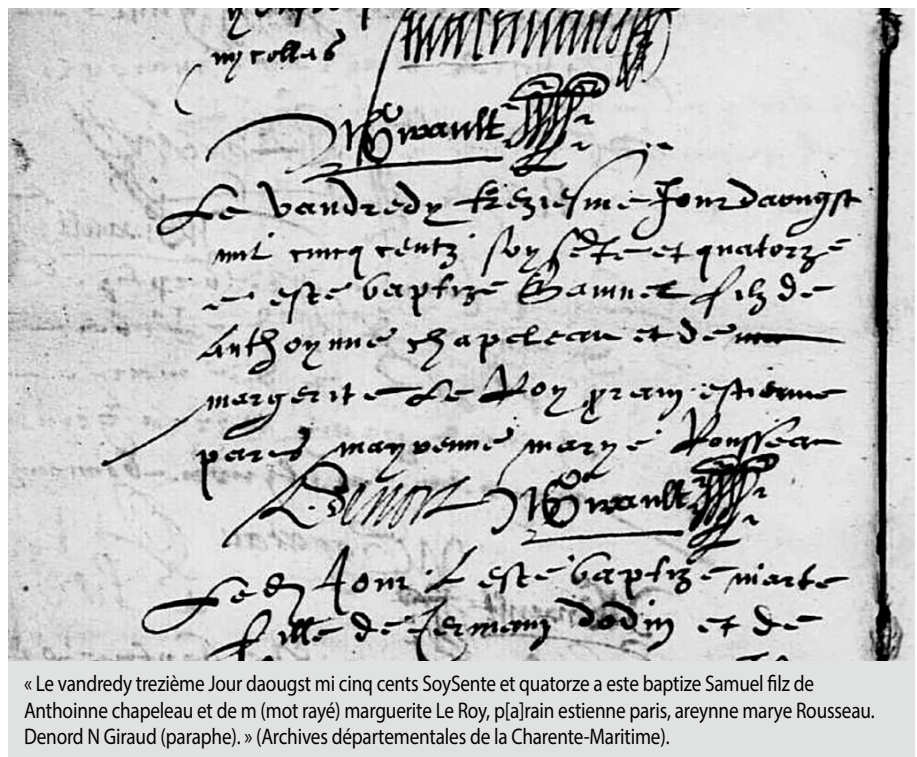 nycollas
NGirault
Le vandredy treziesme Jour daougst
mil cincq centz soysente et quatorze
a este baptize Samuel filz de
Anthoynne chapeleau et de
margerite Le Roy parain estienne
paris mayrenne marye Rousseau
Denort NGirault
Ledy Jour a este baptize marte
fille de Jermain dodin et de
« Le vandredy trezième Jour daougst mi cinq cents SoySente et quatorze a este baptize Samuel filz de
Anthoinne chapeleau et de m (mot rayé) marguerite Le Roy, p[a]rain estienne paris, areynne marye Rousseau.
Denord N Giraud (paraphe). » (Archives départementales de la Charente-Maritime).